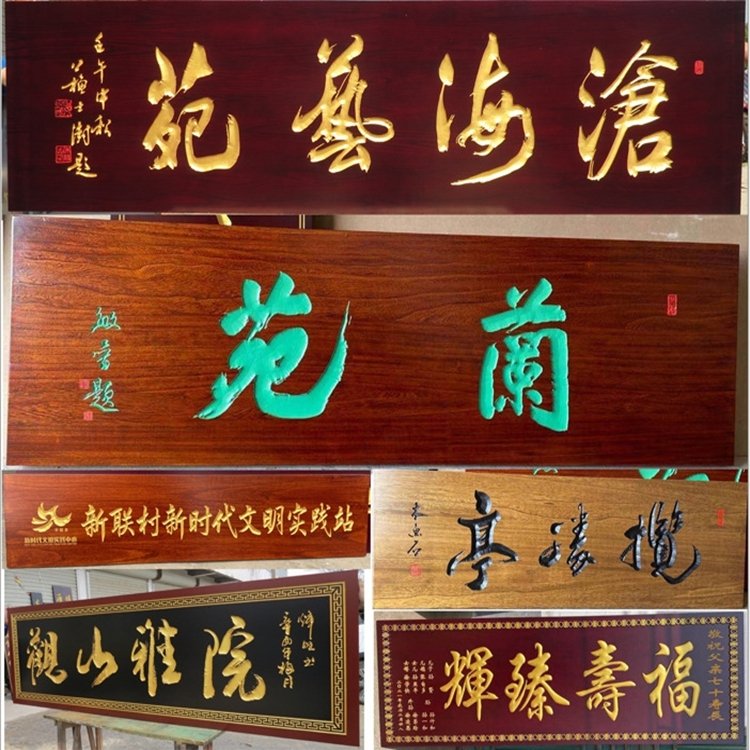 滄海藝苑
壬午中秋
蘇士澍題
蘭苑
題
新联村新时代文明实践站
新时代文明实践中心
攬勝亭
觀山雅院
敬祝父亲七十寿辰
福壽臻輝